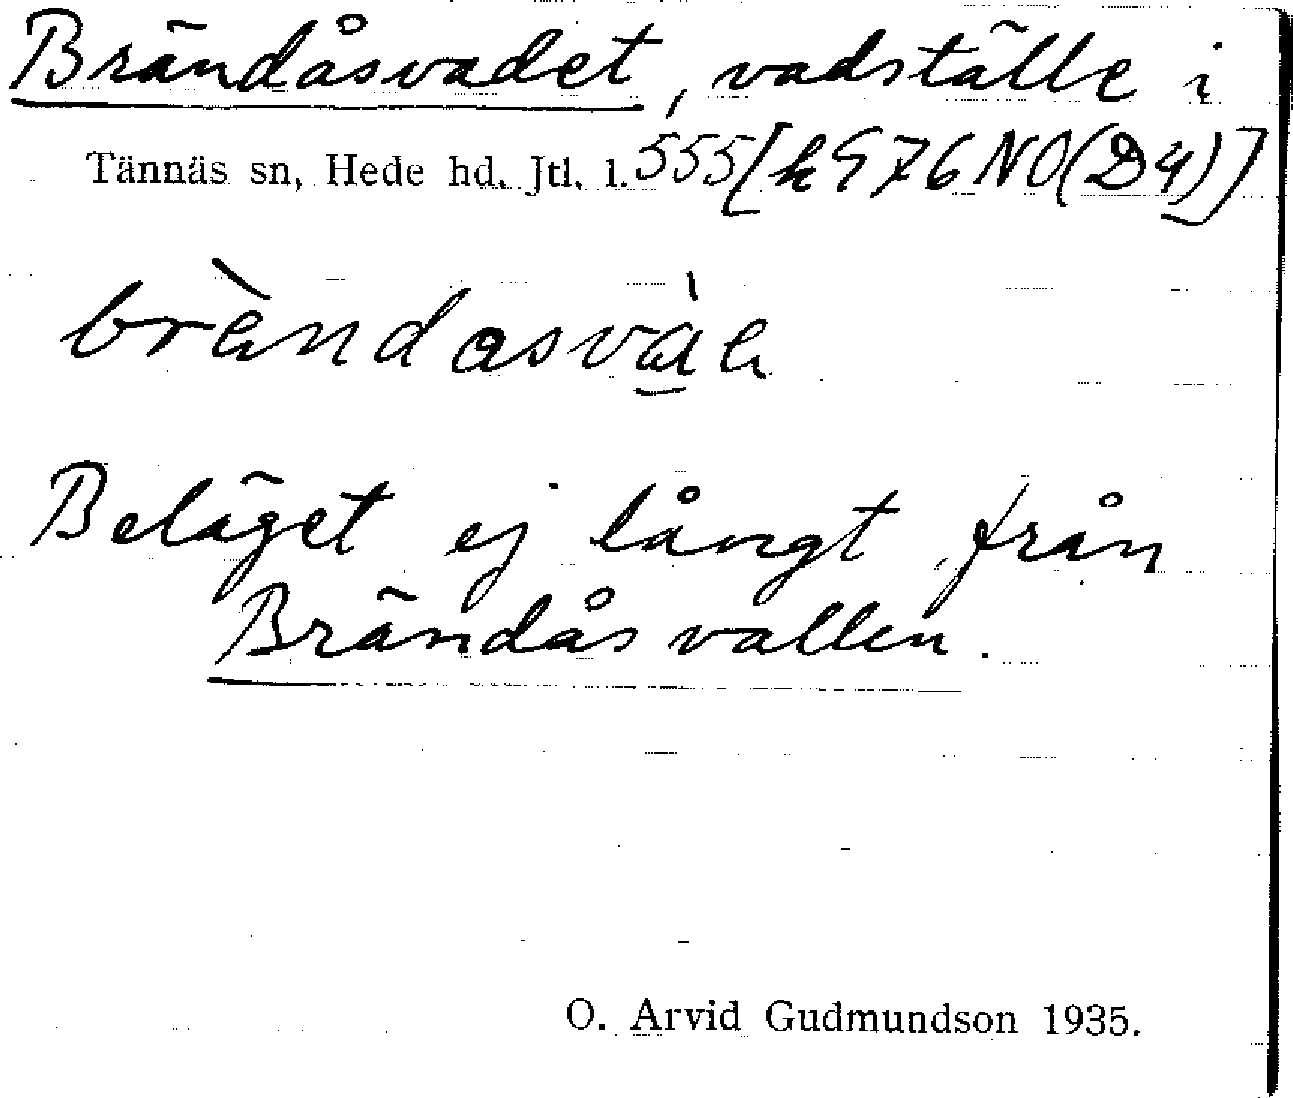 Brändåsvadet, vadställe i
Tännäs sn, Hede hd. Jtl. l. 555 [k 976 NO (D4)]
brèndasvàe
Beläget ej långt från
Brändåsvallen.
O. Arvid Gudmundson 1935.